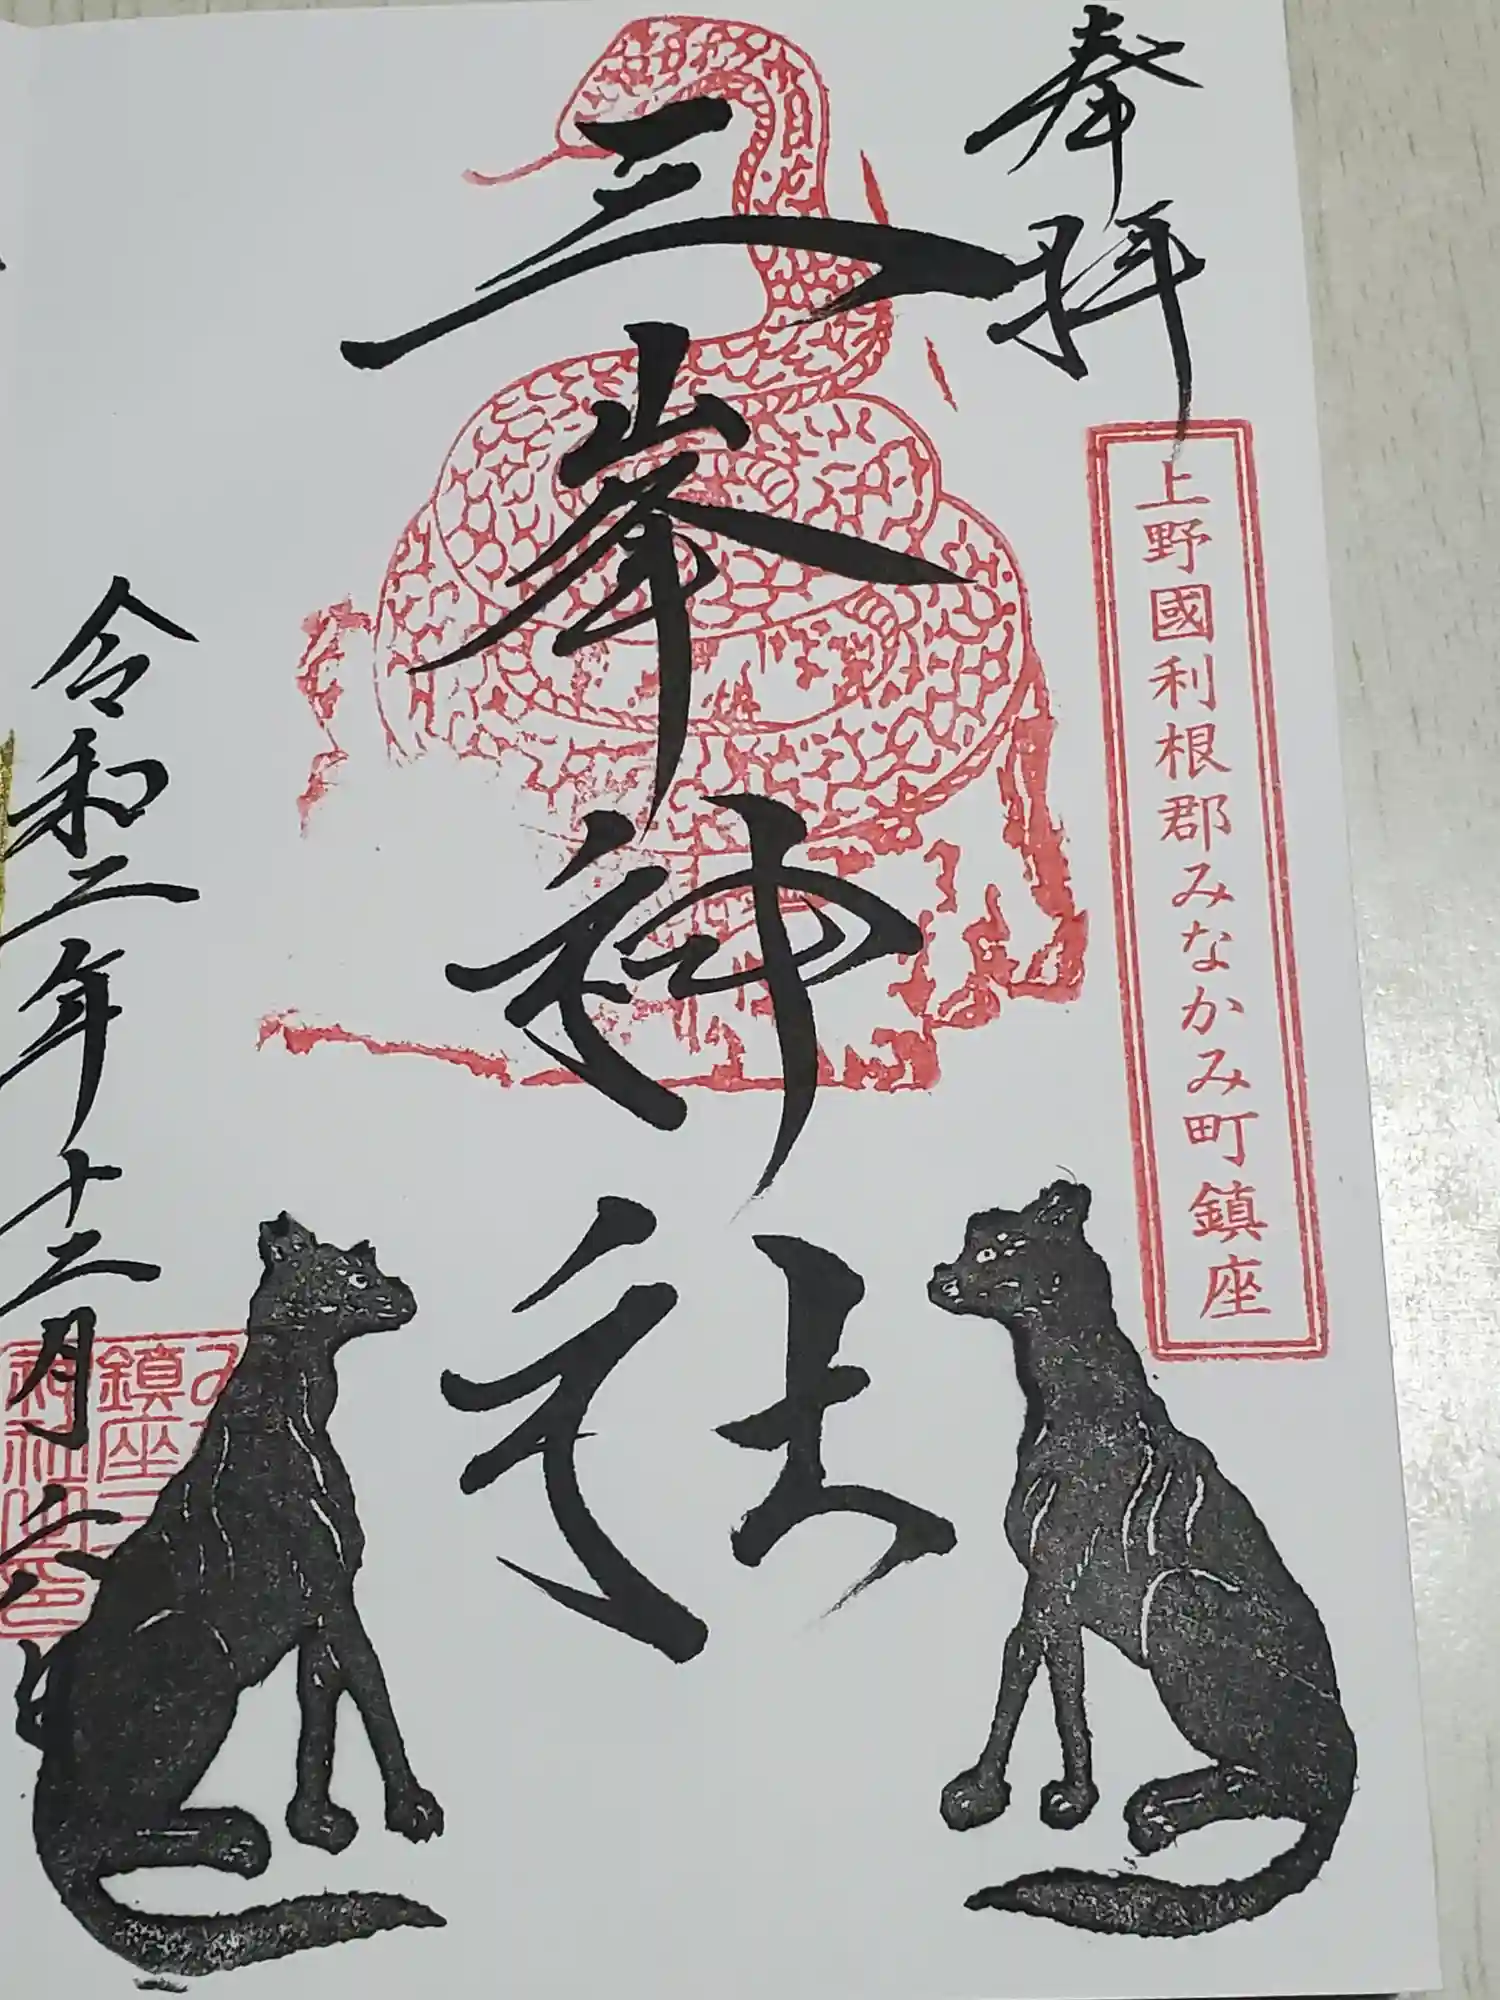 奉拝
上野國利根郡みなかみ町鎮座
三峯神社
令和二年十二月六日
鎮座三
神社之印